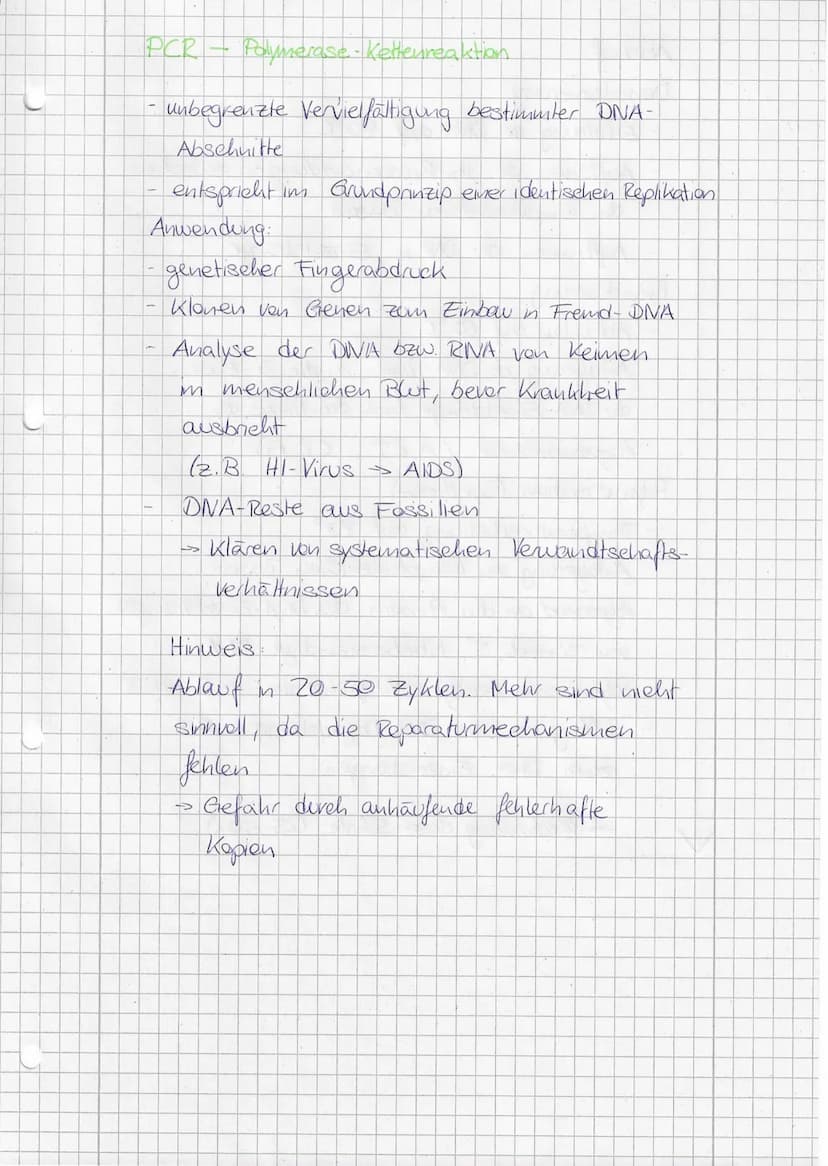 PCR – Polymerase-Kettenreaktion
- unbegrenzte Vervielfältigung bestimmter DNA-
Abschnitte
- entspricht im Grundprinzip einer identischen Replikation
Anwendung:
- genetischer Fingerabdruck
- Klonen von Genen zum Einbau in Fremd-DNA
- Analyse der DNA bzw. RNA von Keimen
im menschlichen Blut, bevor Krankheit
ausbricht
(z.B. HI-Virus → AIDS)
- DNA-Reste aus Fossilien
→ Klären von systematischen Verwandtschafts-
verhältnissen
Hinweis:
Ablauf in 20-50 Zyklen. Mehr sind nicht
sinnvoll, da die Reparaturmechanismen
fehlen
→ Gefahr durch anhäufende fehlerhafte
Kopien